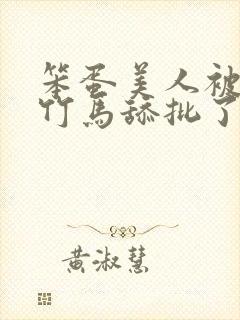 笨蛋美人被
竹马舔批了
黄淑慧